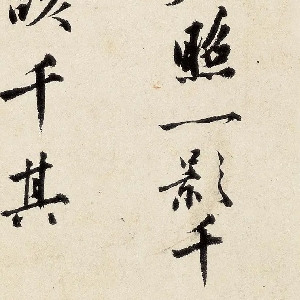 照一影千
千其